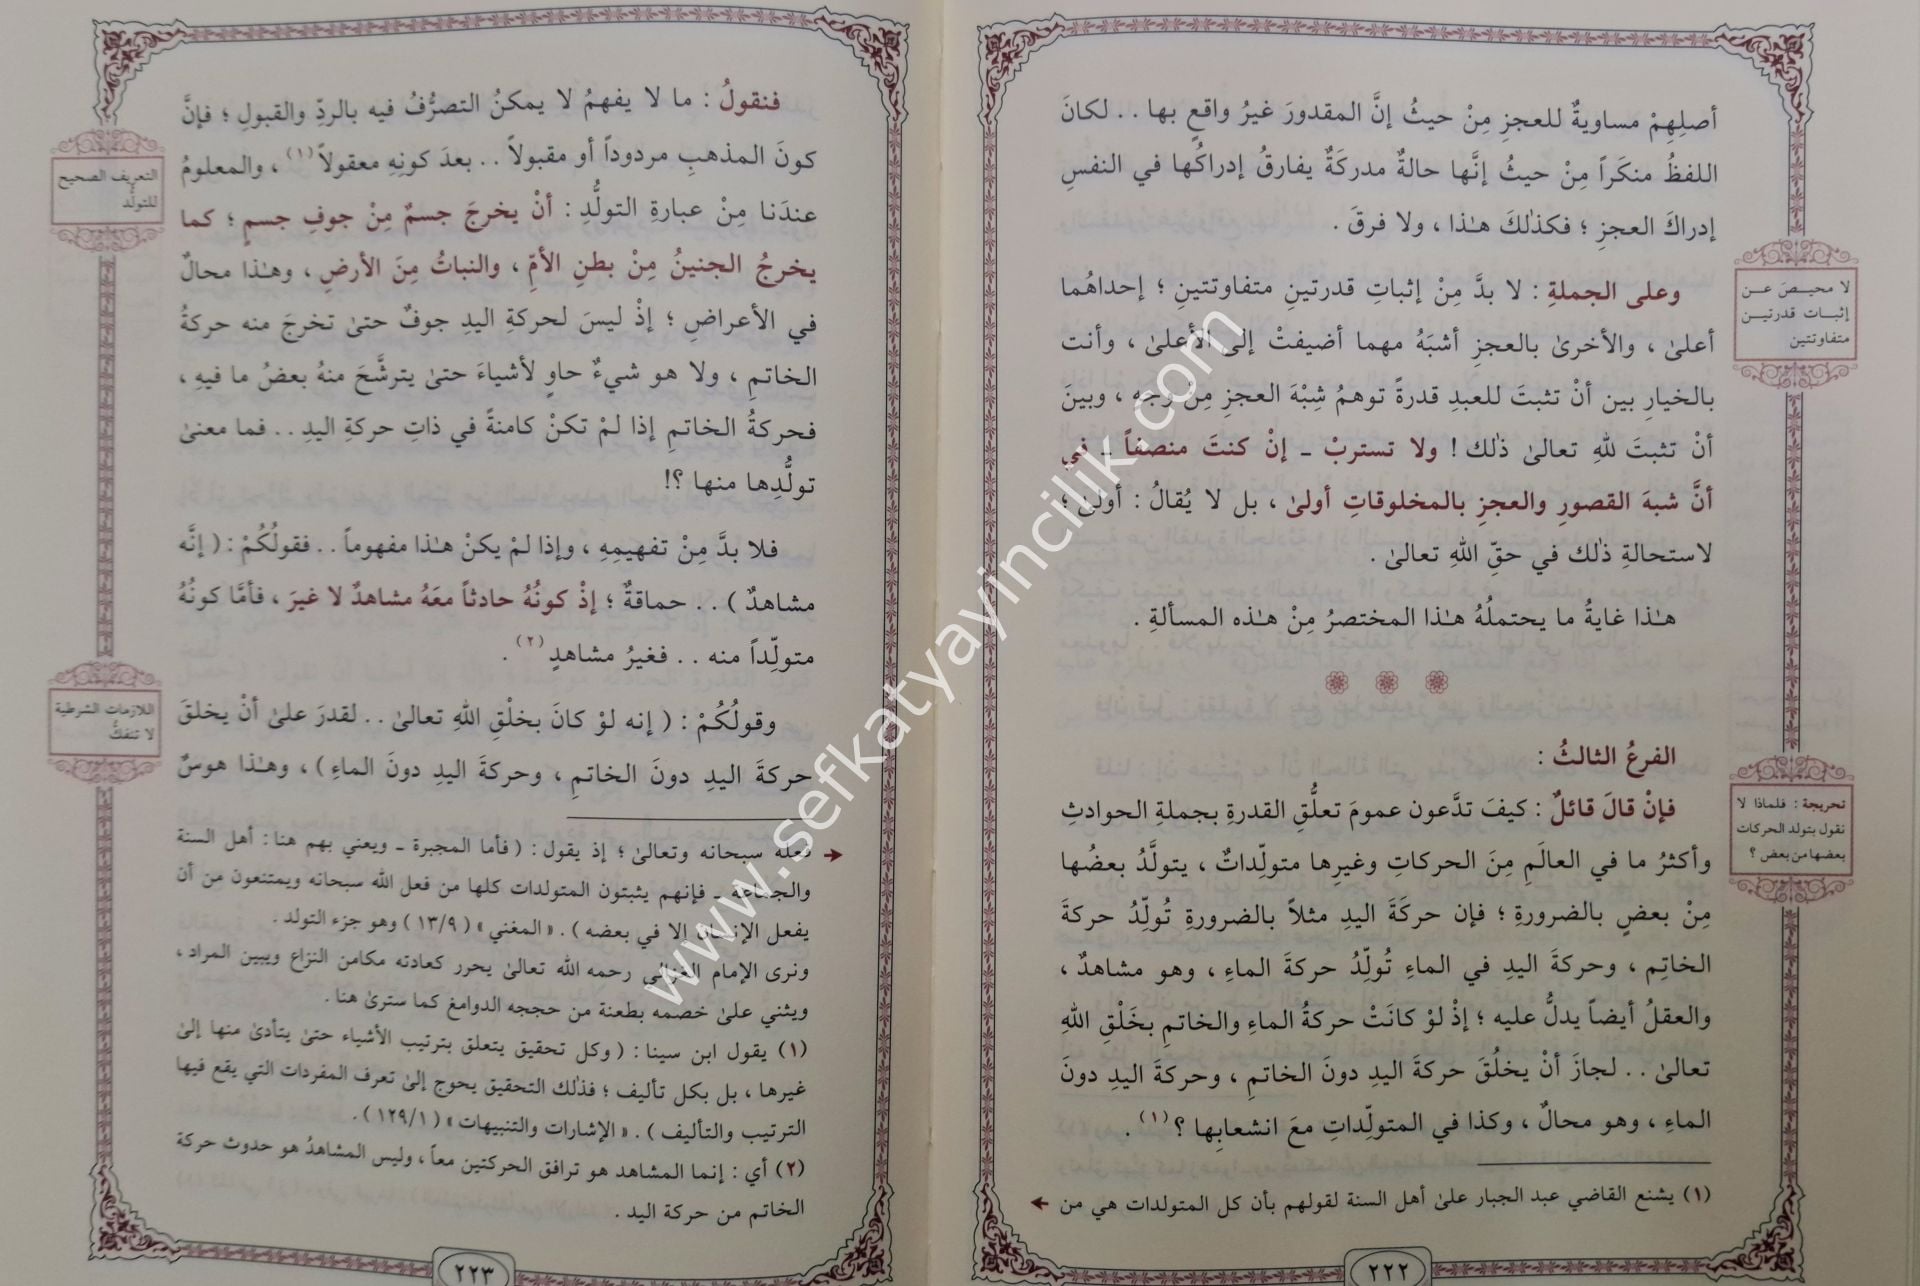 أصلِهِمْ مساويةٌ للعجزِ مِنْ حيثُ إنَّ المقدورَ غيرُ واقعٍ بها . . لكانَ
اللفظُ منكَراً مِنْ حيثُ إنَّها حالةٌ مدركَةٌ يفارقُ إدراكُها في النفسِ
إدراكَ العجزِ ؛ فكذٰلكَ هـٰذا ، ولا فرقَ .
وعلى الجملةِ : لا بدَّ مِنْ إثباتِ قدرتينِ متفاوتتينِ ؛ إحداهُما
أعلىٰ ، والأخرىٰ بالعجزِ أشبَهُ مهما أضيفتْ إلى الأعلىٰ ، وأنت
بالخيارِ بين أنْ تثبتَ للعبدِ قدرةً توهمُ شِبْهَ العجزِ مِنْ وجهٍ ، وبينَ
أنْ تثبتَ للهِ تعالىٰ ذٰلك ! ولا تستربْ ـ إنْ كنتَ منصفاً ـ في
أنَّ شبهَ القصورِ والعجزِ بالمخلوقاتِ أولىٰ ، بل لا يُقالُ : أولىٰ ؛
لاستحالةِ ذٰلك في حقِّ اللهِ تعالىٰ .
هـٰذا غايةُ ما يحتملُهُ هـٰذا المختصرُ مِنْ هـٰذه المسألةِ .
الفرعُ الثالثُ :
فإنْ قالَ قائلٌ : كيفَ تدَّعون عمومَ تعلُّقِ القدرةِ بجملةِ الحوادثِ
وأكثرُ ما في العالَمِ مِنَ الحركاتِ وغيرِها متولّداتٌ ، يتولَّدُ بعضُها
مِنْ بعضٍ بالضرورةِ ؛ فإن حركَةَ اليدِ مثلاً بالضرورةِ تُولّدُ حركةَ
الخاتِم ، وحركةَ اليدِ في الماءِ تُولّدُ حركةَ الماءِ ، وهو مشاهدٌ ،
والعقلُ أيضاً يدلُّ عليه ؛ إذْ لوْ كانَتْ حركةُ الماءِ والخاتمِ بخَلْقِ اللهِ
تعالىٰ . . لجازَ أنْ يخلُقَ حركةَ اليدِ دونَ الخاتمِ ، وحركةَ اليدِ دونَ
الماءِ ، وهو محالٌ ، وكذا في المتولّداتِ معَ انشعابِها ؟ (١) .
(١) يشنع القاضي عبد الجبار علىٰ أهل السنة لقولهم بأن كل المتولدات هي من
لا محيـصَ عـن
إثبـات قدرتيـن
متفاوتتين
تحريجة : فلماذا لا
نقول بتولد الحركات
بعضها من بعض ؟
٢٢٢
فنقولُ : ما لا يفهمُ لا يمكنُ التصرُّفُ فيه بالردِّ والقبولِ ؛ فإنَّ
كونَ المذهبِ مردوداً أو مقبولاً . . بعدَ كونِهِ معقولاً (١) ، والمعلومُ
عندَنا مِنْ عبارةِ التولُّدِ : أنْ يخرجَ جسمٌ مِنْ جوفِ جسمٍ ؛ كما
يخرجُ الجنينُ مِنْ بطنِ الأمِّ ، والنباتُ مِنَ الأرضِ ، وهـٰذا محالٌ
في الأعراضِ ؛ إذْ ليسَ لحركةِ اليدِ جوفٌ حتىٰ تخرجَ منه حركةُ
الخاتمِ ، ولا هو شيءٌ حاوٍ لأشياءَ حتىٰ يترشَّحَ منهُ بعضُ ما فيهِ ،
فحركةُ الخاتمِ إذا لمْ تكنْ كامنةً في ذاتِ حركةِ اليدِ . . فما معنىٰ
تولُّدِها منها ؟!
فلا بدَّ مِنْ تفهيمِهِ ، وإذا لمْ يكنْ هـٰذا مفهوماً . . فقولُكُمْ : ( إنَّه
مشاهدٌ ) . . حماقةٌ ؛ إذْ كونُهُ حادثاً معَهُ مشاهدٌ لا غيرَ ، فأمَّا كونُهُ
متولّداً منه . . فغيرُ مشاهدٍ (٢) .
وقولُكُمْ : ( إنه لوْ كانَ بخلْقِ اللهِ تعالىٰ . . لقدرَ علىٰ أنْ يخلقَ
حركةَ اليدِ دونَ الخاتمِ ، وحركةَ اليدِ دونَ الماءِ ) ، وهـٰذا هوسٌ
فعله سبحانه وتعالىٰ ؛ إذ يقول : ( فأما المجبرة ـ ويعني بهم هنا : أهل السنة
والجماعة ـ فإنهم يثبتون المتولدات كلها من فعل الله سبحانه ويمتنعون من أن
يفعل الإنسان إلا في بعضه ) . « المغني » ( ١٣/٩ ) وهو جزء التولد .
ونرى الإمام الغزالي رحمه الله تعالىٰ يحرر كعادته مكامن النزاع ويبين المراد ،
ويثني علىٰ خصمه بطعنة من حججه الدوامغ كما سترىٰ هنا .
(١) يقول ابن سينا : ( وكل تحقيق يتعلق بترتيب الأشياء حتىٰ يتأدىٰ منها إلىٰ
غيرها ، بل بكل تأليف ؛ فذٰلك التحقيق يحوج إلىٰ تعرف المفردات التي يقع فيها
الترتيب والتأليف ) . « الإشارات والتنبيهات » ( ١٢٩/١ ) .
(٢) أي : إنما المشاهد هو ترافق الحركتين معاً ، وليس المشاهدُ هو حدوث حركة
الخاتم من حركة اليد .
التعريف الصحيح
للتولُّد
اللازمات الشرطية
لا تنفكُّ
٢٢٣
www.sefkatyayincilik.com